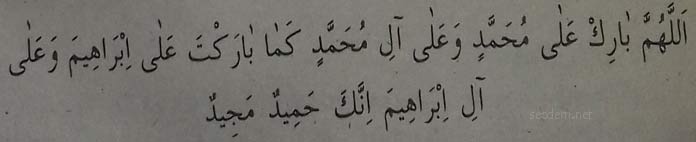 اَللَّهُمَّ بَارِكْ عَلٰى مُحَمَّدٍ وَعَلٰى آلِ مُحَمَّدٍ كَمَا بَارَكْتَ عَلٰى اِبْرَاهِيمَ وَعَلٰى
آلِ اِبْرَاهِيمَ اِنَّكَ حَمِيدٌ مَجِيدٌ
seodem.net